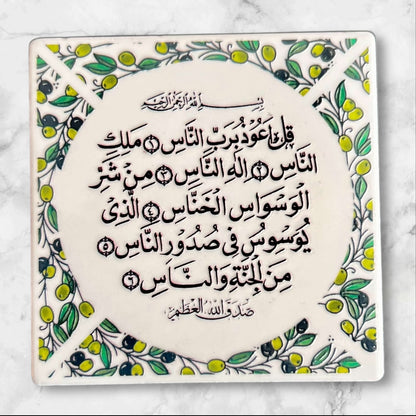 بسم الله الرحمن الرحيم
قُلْ أَعُوذُ بِرَبِّ النَّاسِ ١ مَلِكِ
النَّاسِ ٢ إِلَٰهِ النَّاسِ ٣ مِنْ شَرِّ
الْوَسْوَاسِ الْخَنَّاسِ ٤ الَّذِي
يُوَسْوِسُ فِي صُدُورِ النَّاسِ ٥
مِنَ الْجِنَّةِ وَالنَّاسِ ٦
صدق الله العظيم